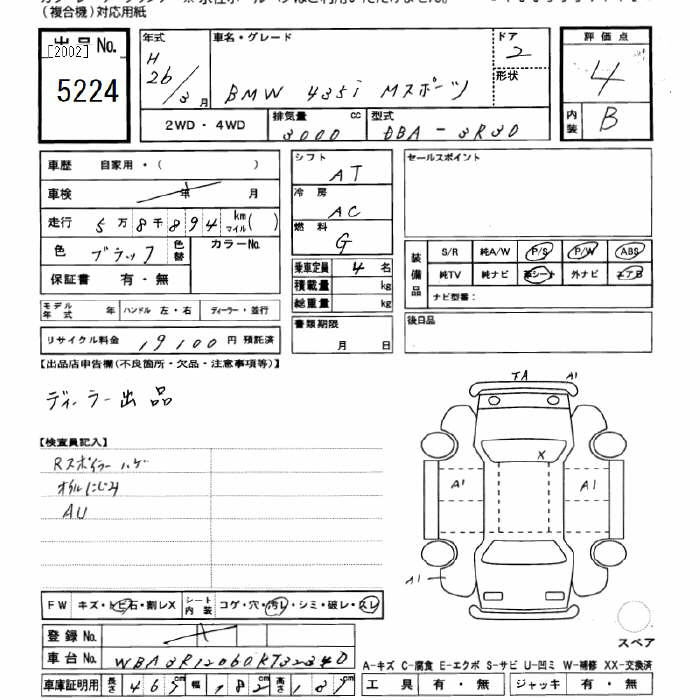 (複合機)対応用紙
出品No.
[2002]
5224
年式
H
26/3月
車名・グレード
BMW 435i Mスポーツ
ドア
2
形状
評価点
4
内装
B
2WD・4WD
排気量
3000
cc
型式
DBA-3R30
車歴 自家用・( )
車検 年 月
走行 5万8千894 km マイル( )
色 ブラック
色替
カラーNo.
保証書 有・無
モデル年式 年
ハンドル 左・右
ディーラー・並行
リサイクル料金 19100円 預託済
シフト
AT
冷房
AC
燃料
G
乗車定員 4名
積載量 kg
総重量 kg
書類期限
月 日
セールスポイント
装備品
S/R 純A/W P/S P/W ABS
純TV 純ナビ 革シート 外ナビ エアB
ナビ型番:
後日品
【出品店申告欄(不良箇所・欠品・注意事項等)】
ディーラー出品
【検査員記入】
Rスポイラーハゲ
オイルにじみ
AU
FW キズ・トビ石・割レX
シート内装 コゲ・穴・汚レ・シミ・破レ・スレ
登録No.
車台No. WBA3R12060K732340
車庫証明用 長さ 465cm 幅 182cm 高さ 137cm
TA A1
X
A1 A1
A1
スペア
A-キズ C-腐食 E-エクボ S-サビ U-凹ミ W-補修 XX-交換済
工具 有・無 ジャッキ 有・無